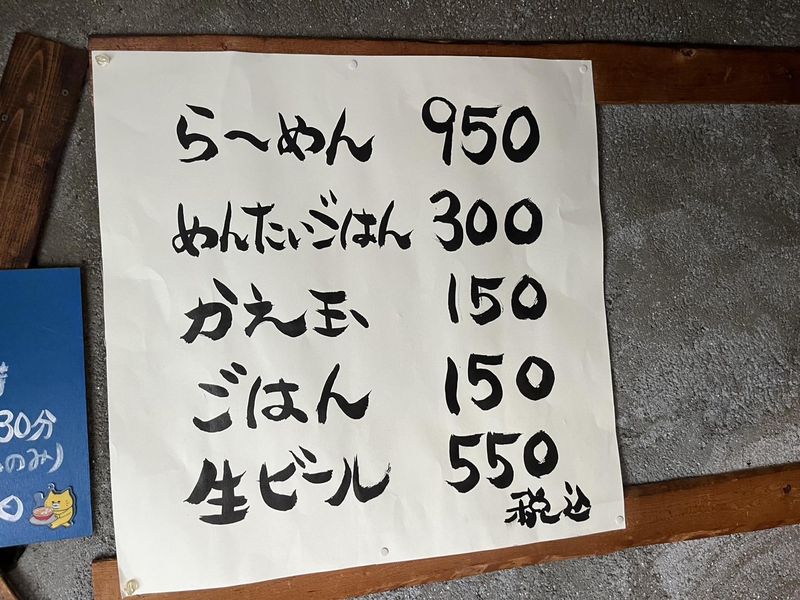 ら〜めん 950
めんたいごはん 300
かえ玉 150
ごはん 150
生ビール 550
税込
30分
のみ)